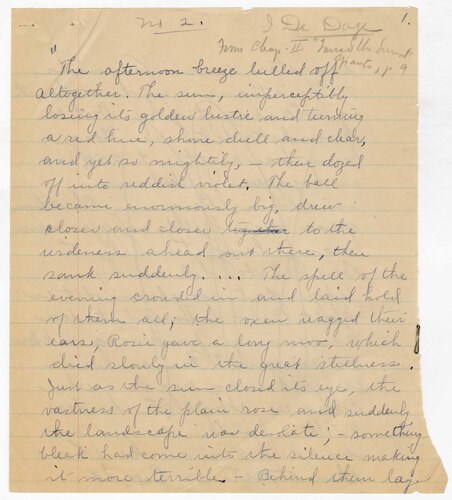 no 2.
I De Dage
1.
From Chap. II "Toward the Sunset
p. 9
"The afternoon breeze lulled off
altogether. The sun, imperceptibly
losing its golden lustre and turning
a red hue, shone dull and clear,
and yet so mightily, — then dozed
off into reddish violet. The ball
became enormously big, drew
closer and closer together to the
wideness ahead out there, then
sank suddenly. ... The spell of the
evening crowded in and laid hold
of them all; the oxen wagged their
ears, Rosie gave a long moo, which
died slowly in the great stillness.
Just as the sun closed its eye, the
vastness of the plain rose and suddenly
the landscape was desolate; — something
bleak had come into the silence making
it more terrible — Behind them lay